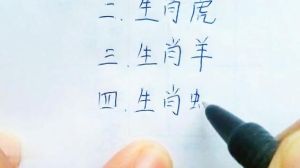 二.生肖虎
三.生肖羊
四.生肖